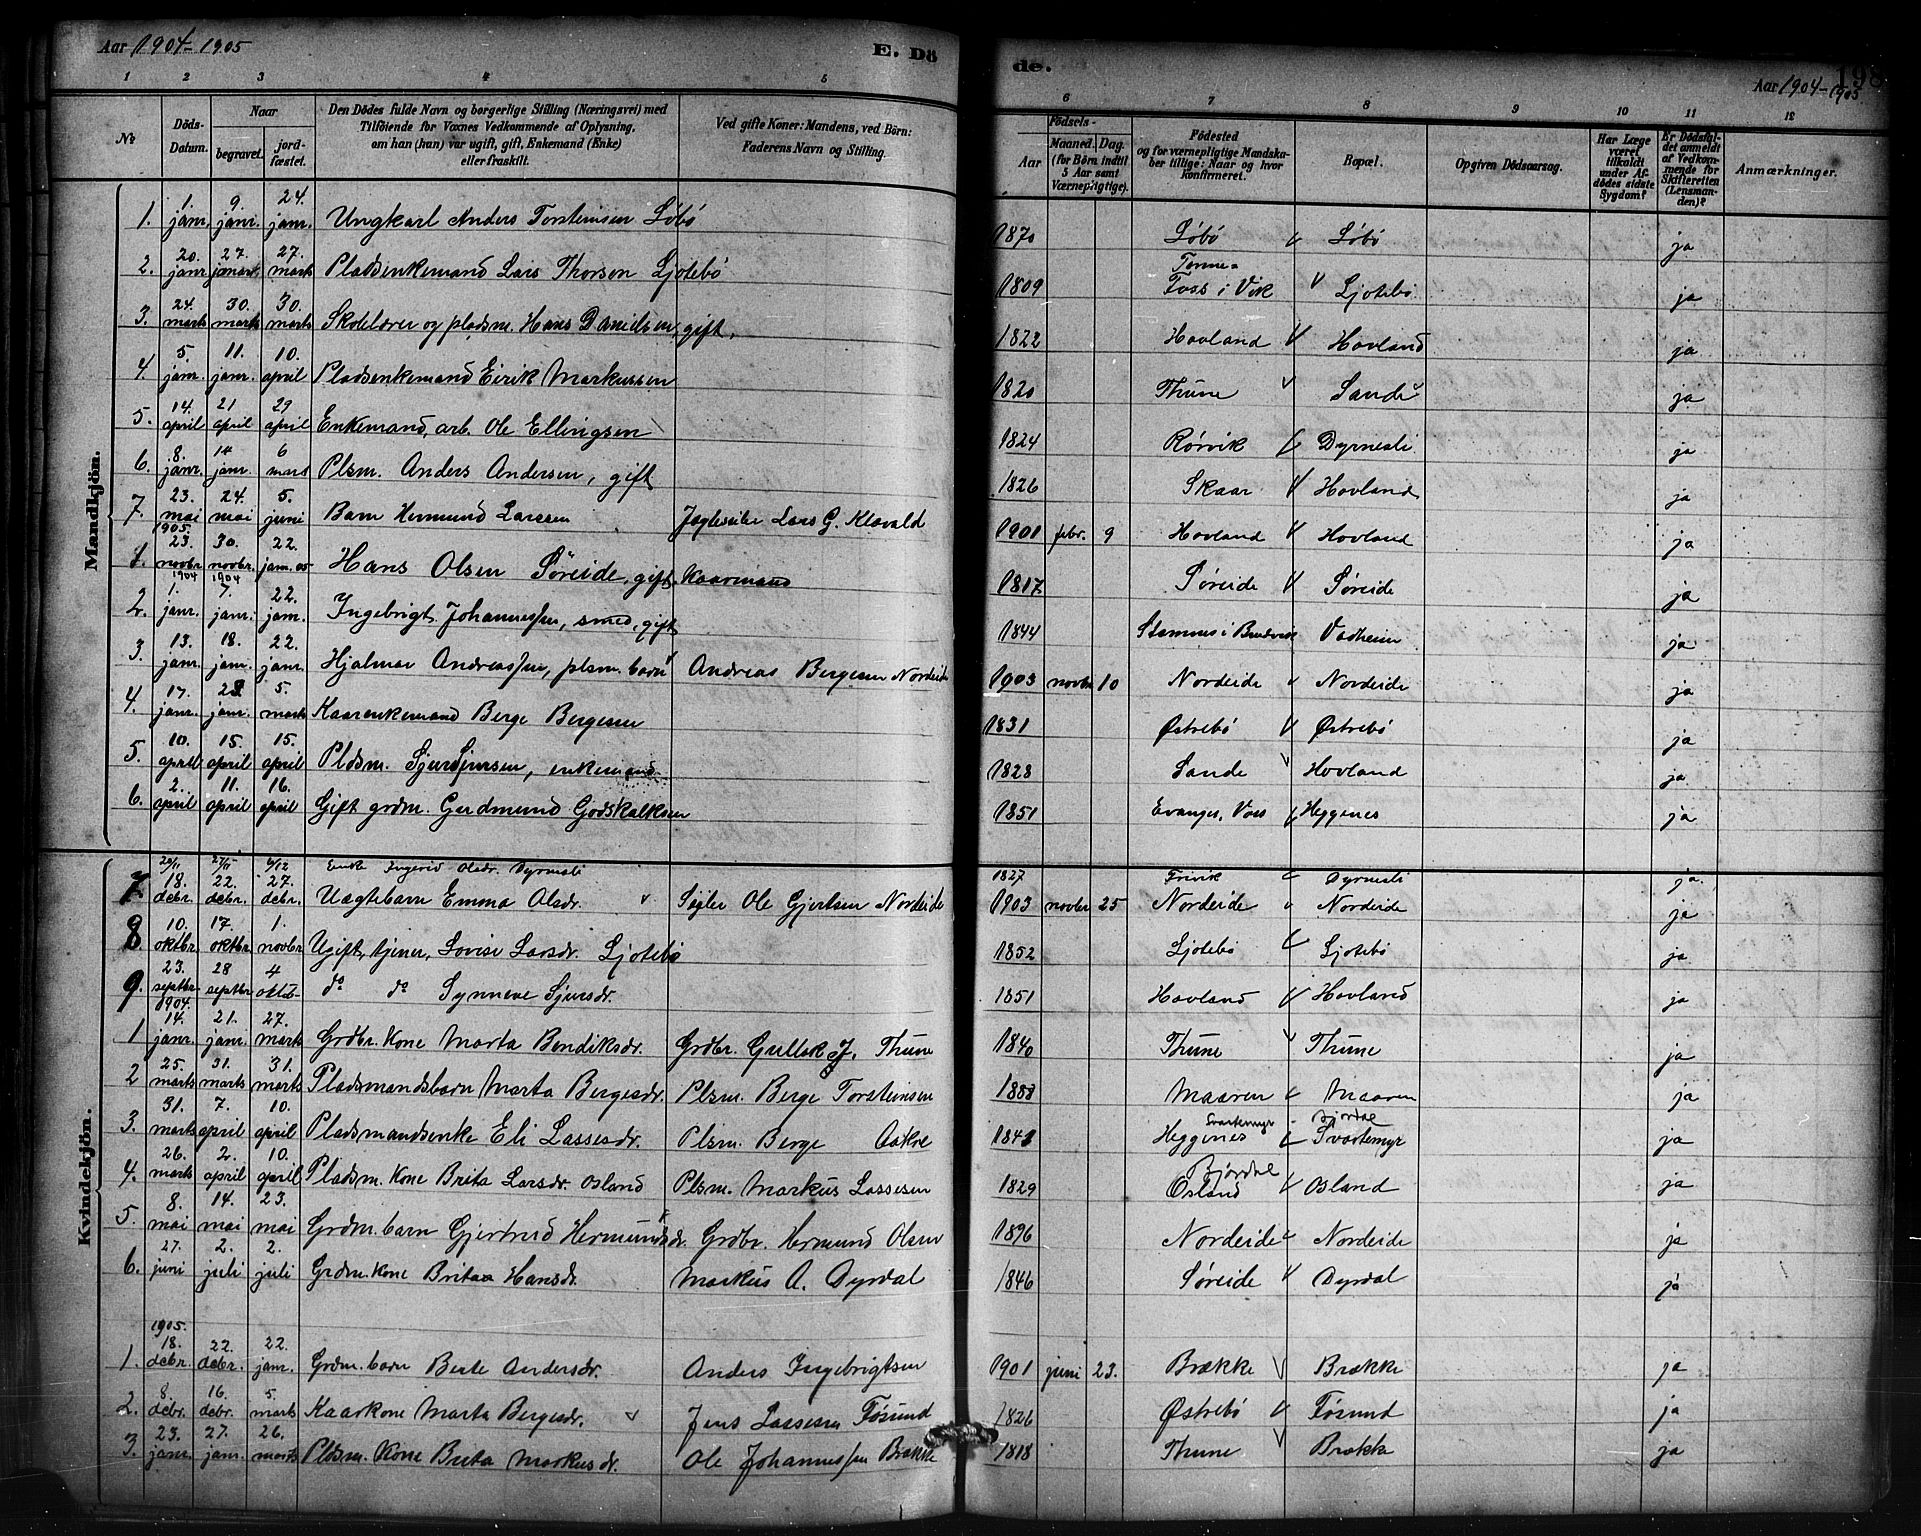 Aar 1904-1905 E. Dö
de. 198
Aar 1904-1905
1 2 3 4 5 6 7 8 9 10 11 12
No Döds-Datum. Naar begravet. jordfæstet. Den Dödes fulde Navn og borgerlige Stilling (Næringsvei) med Tilföiende for Voxnes Vedkommende af Oplysning, om han (hun) var ugift, gift, Enkemand (Enke) eller fraskilt. Ved gifte Koner: Mandens, ved Börn: Faderens Navn og Stilling. Födsels- Aar Maaned. Dag. (for Börn indtil 5 Aar samt Værnepligtige). Födested og for værnepligtige Mandskaber tillige: Naar og hvor konfirmeret. Bopæl. Opgiven Dödsaarsag. Har Læge været tilkaldt under Afdödes sidste Sygdom? Er Dödsfaldet anmeldt af Vedkommende for Skifteretten (Lensmanden)? Anmærkninger.
Mandkjön.
1. 1. janr. 9. janr. 24. janr. Ungkarl Anders Torsteinsen Löbö 1870 Löbö Löbö ja
2. 20. janr. 27. januar 27. marts Pladsenkemand Lars Thorsen Ljotebö 1809 Tenne-Foss i Vik Ljotebö ja
3. 24. marts 30. marts 30. marts Skolelærer og pladsm. Hans Danielsen, gift, 1822 Hovland Hovland ja
4. 5. janr. 11. janr. 10. april Pladsenkemand Eirik Markussen 1820 Thune Sande ja
5. 14. april 21 april 29 april Enkemand, arb. Ole Ellingsen 1824 Rörvik Dyrnesli ja
6. 8. janr. 14 janr. 6 mars Plsm. Anders Andersen, gift 1826 Skaar Hovland ja
7. 23. mai 24. mai 5. juni Barn Hermund Larssen Lars G. Klævald 1901 febr. 9 Hovland Hovland ja
1905
1. 23. novbr. 1904 30. novbr. 1904 22. janr. 05 Hans Olsen Söreide, gift Kaarmand 1817 Söreide Söreide ja
2. 1. janr. 7. janr. 22. janr. Ingebrigt Johannessen, smed, gift 1844 Stamnes i Vadheim ja
3. 13. janr. 18. janr. 22. janr. Hjalmar Andreassen, plsm. barn Andreas Bergesen Nordeide 1903 novbr 10 Nordeide Nordeide ja
4. 17. janr. janr. 5. marts Kaarenkemand Berge Bergesen 1831 Østrebö Østrebö ja
5. 10. april 15. april 15. april Pldsm. Sjur Sjursen, enkemand 1828 Sande Hovland ja
6. 2. april 11. april 16. april Gift grdm. Gerdmund Godskalksen 1851 Evanger, Voss Heggenes ja
20/11 27/11 6/12 Enke Ingerid Olsdr. Dyrnesli 1827 Dyrnesli ja
7. 18. debr. 22. debr. 27. debr. Uægtebarn Emma Olsdr. Ole Gjertsen Nordeide 1903 novbr 25 Nordeide Nordeide ja
8. 10. oktbr. 17. oktbr 1. novbr Ugift, tjener, Lovise Larsdr. Ljotebö 1852 Ljotebö Ljotebö ja
9. 23. septbr. 28 septbr 4 oktob- do do Synneve Sjursdr. 1851 Hovland Hovland ja
Kvindekjön.
1904.
1 14. janr. 21. janr. 27. marts Grdbr. Kone Marta Bendiksdr. Grdbr. Gullak J. Thune 1840 Thune Thune ja
2 25. marts 31. marts 31. marts Pladsmandsbarn Marta Bergesdr. Plsm. Berge Torsteinsen 1888 Maaren Maaren ja
3. 31. marts 7. april 10. april Pladsmandsenke Eli Lassesdr. Plsm. Berge Aakre 1841 Heggenes Svartemyr Svartemyr ja
4. 26. marts 2. april 10. april Pladsm. Kone Brita Larsdr. Osland Plsm. Markus Lassesen 1829 Björdal Osland Osland ja
5. 8. mai 14. mai 23. mai Grdm. barn Gjertrud Hermundsdr. Grdbr. Hermund Olsen 1896 Nordeide Nordeide ja
6. 27. juni 2. juli 2. juli Grdm. Kone Brita Hansdr. Markus A. Dyrdal 1846 Söreide Dyrdal ja
1905.
1. 18. debr. 22. debr. 22. janr. Grdm. barn Berte Andersdr. Anders Ingebrigtsen 1901 juni 23. Brække Brække ja
2. 8. debr. 16. debr. 5. marts Kaarkone Marta Bergesdr. Jens Lassesen Fösund 1826 Østrebö Fösund ja
3. 23. janr. 27. janr. 26. marts Pldsm. Kone Brita Markusdr. Ole Johannessen Brække 1818 Thune Brække ja